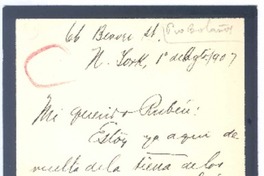 66 Beaver St.
N. York, 1º de Agto/907
Mi querido Rubén:
Estoy ya aquí de
vuelta de la tierra de los